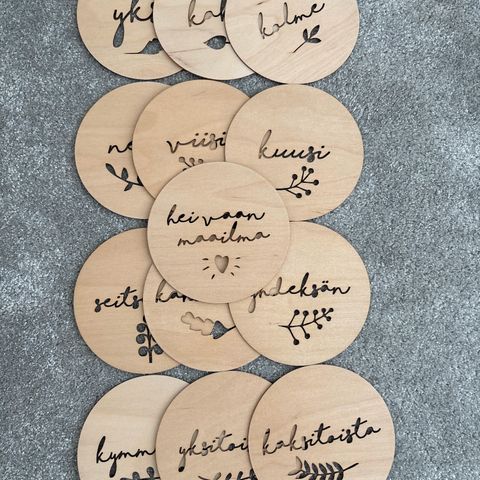 yks
kak
kolme
ne
viisi
kuusi
hei vaan
maailma
seits
kah
yhdeksän
kymm
yksitoi
kaksitoista